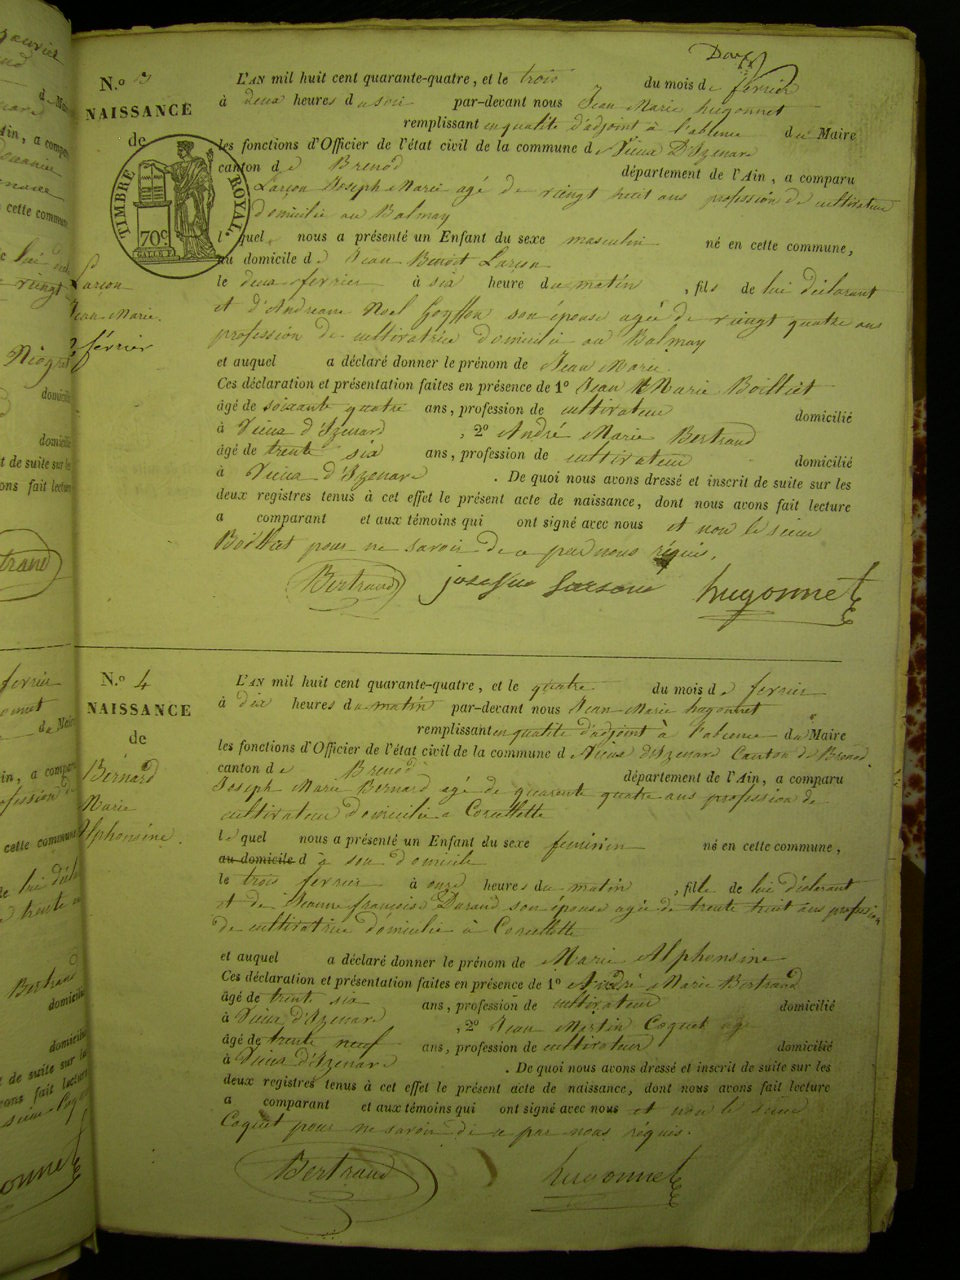 N.o 3
NAISSANCE
de
TIMBRE ROYAL.
70c.
Larçon
Jean Marie.
2 février
L'AN mil huit cent quarante-quatre, et le trois du mois de février
à deux heures du soir par-devant nous Jean Marie hugonnet
remplissant en qualité d'adjoint à l'absence du Maire
les fonctions d'Officier de l'état civil de la commune de Vieux D'Izenave
canton de Brenod département de l'Ain, a comparu
Larçon Joseph Marie agé de vingt huit ans profession de cultivateur
domicilié au Balmay
lequel nous a présenté un Enfant du sexe masculin né en cette commune,
au domicile de Jean Benoit Larçon
le deux fevrier à six heure du matin, fils de lui déclarant
et d'Andreane Noel Goyffon son épouse agée de vingt quatre ans
profession de cultivatrice domiciliée au Balmay
et auquel a déclaré donner le prénom de Jean Marie
Ces déclaration et présentation faites en présence de 1o Jean Marie Boilliet
âgé de soixante quatre ans, profession de cultivateur domicilié
à Vieux d'Izenave, 2o André Marie Bertrand
âgé de trente six ans, profession de cultivateur domicilié
à Vieux d'Izenave. De quoi nous avons dressé et inscrit de suite sur les
deux registres tenus à cet effet le présent acte de naissance, dont nous avons fait lecture
a comparant et aux témoins qui ont signé avec nous et non le sieur
Boilliet pour ne savoir de ce par nous réquis.
Bertrand hugonnet
N.o 4
NAISSANCE
de
Bérnard
Marie
Alphonsine.
L'AN mil huit cent quarante-quatre, et le quatre du mois de fevrier
à dix heures du matin par-devant nous Jean Marie hugonnet
remplissant en qualité d'adjoint à l'absence du Maire
les fonctions d'Officier de l'état civil de la commune de Vieux d'Izenave Canton de Brenod
canton de Brenod département de l'Ain, a comparu
Joseph Marie Bernard agé de quarente quatre ans profession de
cultivateur domicilié a Corcellette
lequel nous a présenté un Enfant du sexe feminin né en cette commune,
au domicile d à son domicile
le trois fevrier à onze heures du matin, fille de lui déclarant
et de Jeanne françoise Durand son épouse agée de trente huit ans profession
de cultivatrice domiciliée à Corcellette
et auquel a déclaré donner le prénom de Marie Alphonsine
Ces déclaration et présentation faites en présence de 1o André Marie Bertrand
âgé de trente six ans, profession de cultivateur domicilié
à Vieux d'Izenave, 2o Jean Coquet
âgé de trente neuf ans, profession de cultivateur domicilié
à Vieux d'Izenave. De quoi nous avons dressé et inscrit de suite sur les
deux registres tenus à cet effet le présent acte de naissance, dont nous avons fait lecture
a comparant et aux témoins qui ont signé avec nous et non le sieur
Coquet pour ne savoir de ce par nous réquis.
Bertrand hugonnet